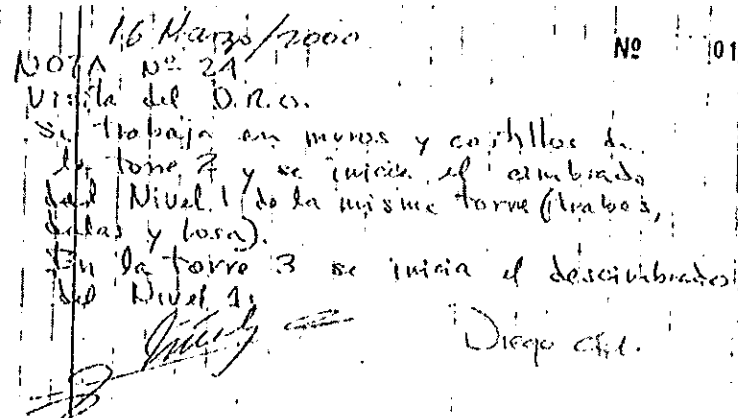 16 Marzo/2000
Nº 01
NOTA Nº 21
Visita del D.R.O.
Se trabaja en muros y castillos de
la torre 2 y se inicia el cimbrado
del Nivel 1 de la misma torre (trabes,
y losa).
En la torre 3 se inicia el descimbrado
del Nivel 1.
Diego